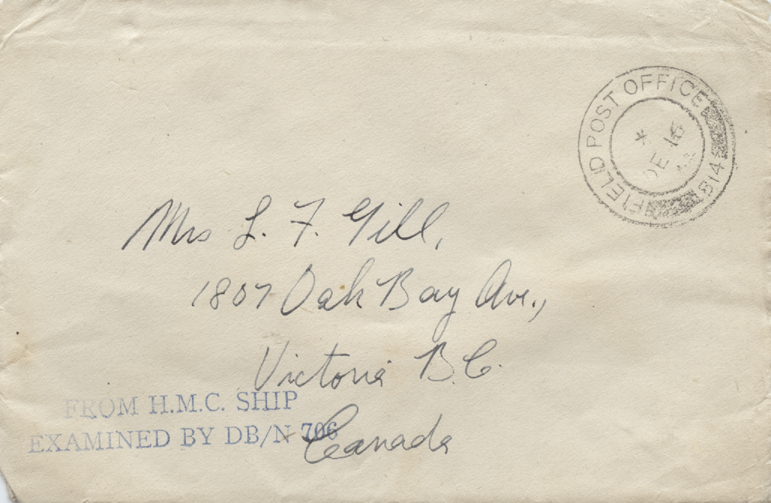 FIELD POST OFFICE
814
* DE 16
Mrs L. F. Gill,
1807 Oak Bay Ave.,
Victoria B.C.
Canada
FROM H.M.C. SHIP
EXAMINED BY DB/N 706